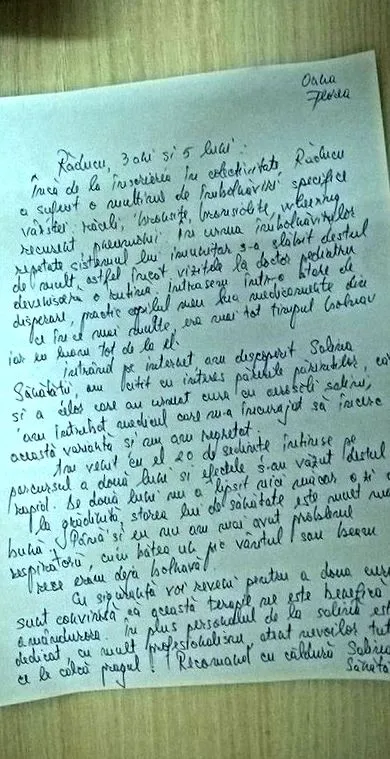 Oana
Florea
Răducu, 3 ani și 5 luni:
Încă de la înscrierea în colectivitate, Răducu
a suferit o mulțime de îmbolnăviri specifice
vârstei: răceli, bronșite, bronșiolite, wheezing
recurent, pneumonii. În urma îmbolnăvirilor
repetate sistemul lui imunitar s-a slăbit destul
de mult, astfel încât vizitele la doctor pediatru
deveniseră o rutină. Intrasem într-o stare de
disperare, practic copilul meu lua medicamente din
ce în ce mai multe, era mai tot timpul bolnav
iar eu luam tot de la el.
Intrând pe internet am descoperit Salina
Sănătății, am citit cu interes părerile părinților,
și a celor care au urmat cura cu aerosoli salini,
am întrebat medicul care m-a încurajat să încerc
această variantă și nu am regretat.
Am venit cu el 20 de ședințe întinse pe
parcursul a două luni și efectele s-au văzut destul
rapid. De două luni nu a lipsit nici măcar o zi
la grădiniță, starea lui de sănătate este mult mai
bună. Până și eu nu am mai avut probleme
respiratorii, cum bătea un pic vântul sau beam
rece eram deja bolnavă.
Cu siguranță voi reveni pentru a doua cură
sunt convinsă că această terapie ne este benefică
amândurora. În plus personalul de la salină
dedicat, cu mult profesionalism, atent nevoilor
ce le calcă pragul. Recomand cu căldură Salina